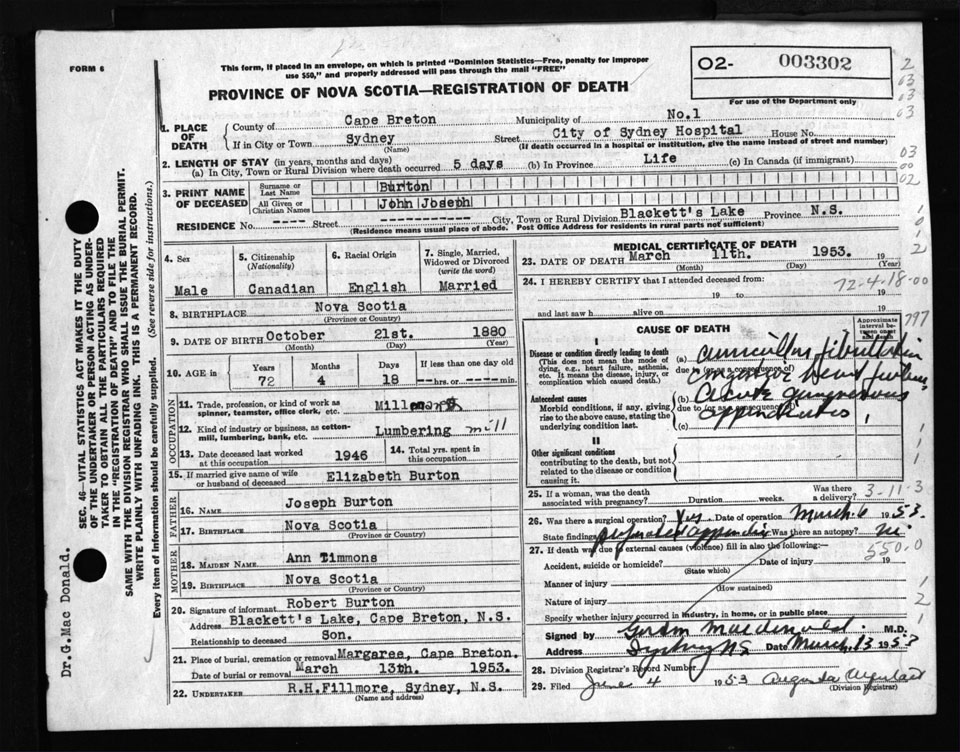 FORM 6
This form, if placed in an envelope, on which is printed "Dominion Statistics—Free, penalty for improper
use $50," and properly addressed will pass through the mail "FREE"
PROVINCE OF NOVA SCOTIA—REGISTRATION OF DEATH
02- 003302
For use of the Department only
1. PLACE OF DEATH
County of Cape Breton Municipality of No.1
If in City or Town Sydney Street City of Sydney Hospital House No.
(Name) (If death occurred in a hospital or institution, give the name instead of street and number)
2. LENGTH OF STAY (in years, months and days)
(a) In City, Town or Rural Division where death occurred 5 days (b) In Province Life (c) In Canada (if immigrant)
3. PRINT NAME OF DECEASED
Surname or Last Name Burton
All Given or Christian Names John Joseph
RESIDENCE No. --- Street ------------ City, Town or Rural Division Blackett's Lake Province N.S.
(Residence means usual place of abode. Post Office Address for residents in rural parts not sufficient)
4. Sex Male
5. Citizenship (Nationality) Canadian
6. Racial Origin English
7. Single, Married, Widowed or Divorced (write the word) Married
8. BIRTHPLACE Nova Scotia
(Province or Country)
9. DATE OF BIRTH October 21st. 1880
(Month) (Day) (Year)
10. AGE in Years 72 Months 4 Days 18 If less than one day old --- hrs. or --- min.
OCCUPATION
11. Trade, profession, or kind of work as spinner, teamster, office clerk, etc.
12. Kind of industry or business, as cotton-mill, lumbering, bank, etc. Lumbering mill
13. Date deceased last worked at this occupation 1946
14. Total yrs. spent in this occupation
15. If married give name of wife or husband of deceased Elizabeth Burton
FATHER
16. NAME Joseph Burton
17. BIRTHPLACE Nova Scotia
(Province or Country)
MOTHER
18. MAIDEN NAME Ann Timmons
19. BIRTHPLACE Nova Scotia
(Province or Country)
20. Signature of informant Robert Burton
Address Blackett's Lake, Cape Breton, N.S.
Relationship to deceased Son.
21. Place of burial, cremation or removal Margaree, Cape Breton.
Date of burial or removal March 13th. 1953.
22. UNDERTAKER R.H.Fillmore, Sydney, N.S.
(Name and address)
MEDICAL CERTIFICATE OF DEATH
23. DATE OF DEATH March 11th. 1953. 19
(Month) (Day) (Year)
24. I HEREBY CERTIFY that I attended deceased from:
72-4-18-00
19 to 19
and last saw h alive on 19
797
CAUSE OF DEATH
Approximate interval between onset and death
I
Disease or condition directly leading to death
(This does not mean the mode of dying, e.g., heart failure, asthenia, etc. It means the disease, injury, or complication which caused death.)
(a) auricular fibrillation
due to (or as a consequence of)
congestive heart failure
Antecedent causes
Morbid conditions, if any, giving rise to the above cause, stating the underlying condition last.
(b) Acute gangrenous
due to (or as a consequence of)
appendicitis
(c)
II
Other significant conditions
contributing to the death, but not related to the disease or condition causing it.
25. If a woman, was the death associated with pregnancy? Duration weeks. Was there a delivery?
3-11-3
26. Was there a surgical operation? Yes Date of operation March 6 1953.
State findings perforated appendix Was there an autopsy? no
27. If death was due to external causes (violence) fill in also the following:
550.0
Accident, suicide or homicide? Date of injury 19
(State which)
Manner of injury
(How sustained)
Nature of injury
Specify whether injury occurred in industry, in home, or in public place
Signed by M.D.
Address Sydney NS Date March 13 1953
28. Division Registrar's Record Number
29. Filed June 4 1953 Augusta
(Division Registrar)
SEC. 46—VITAL STATISTICS ACT MAKES IT THE DUTY
OF THE UNDERTAKER OR PERSON ACTING AS UNDER-
TAKER TO OBTAIN ALL THE PARTICULARS REQUIRED
IN THE "REGISTRATION OF DEATH" AND TO FILE THE
SAME WITH THE DIVISION REGISTRAR WHO SHALL ISSUE THE BURIAL PERMIT.
WRITE PLAINLY WITH UNFADING INK. THIS IS A PERMANENT RECORD.
Every item of information should be carefully supplied. (See reverse side for instructions.)
Dr.G.Mac Donald.